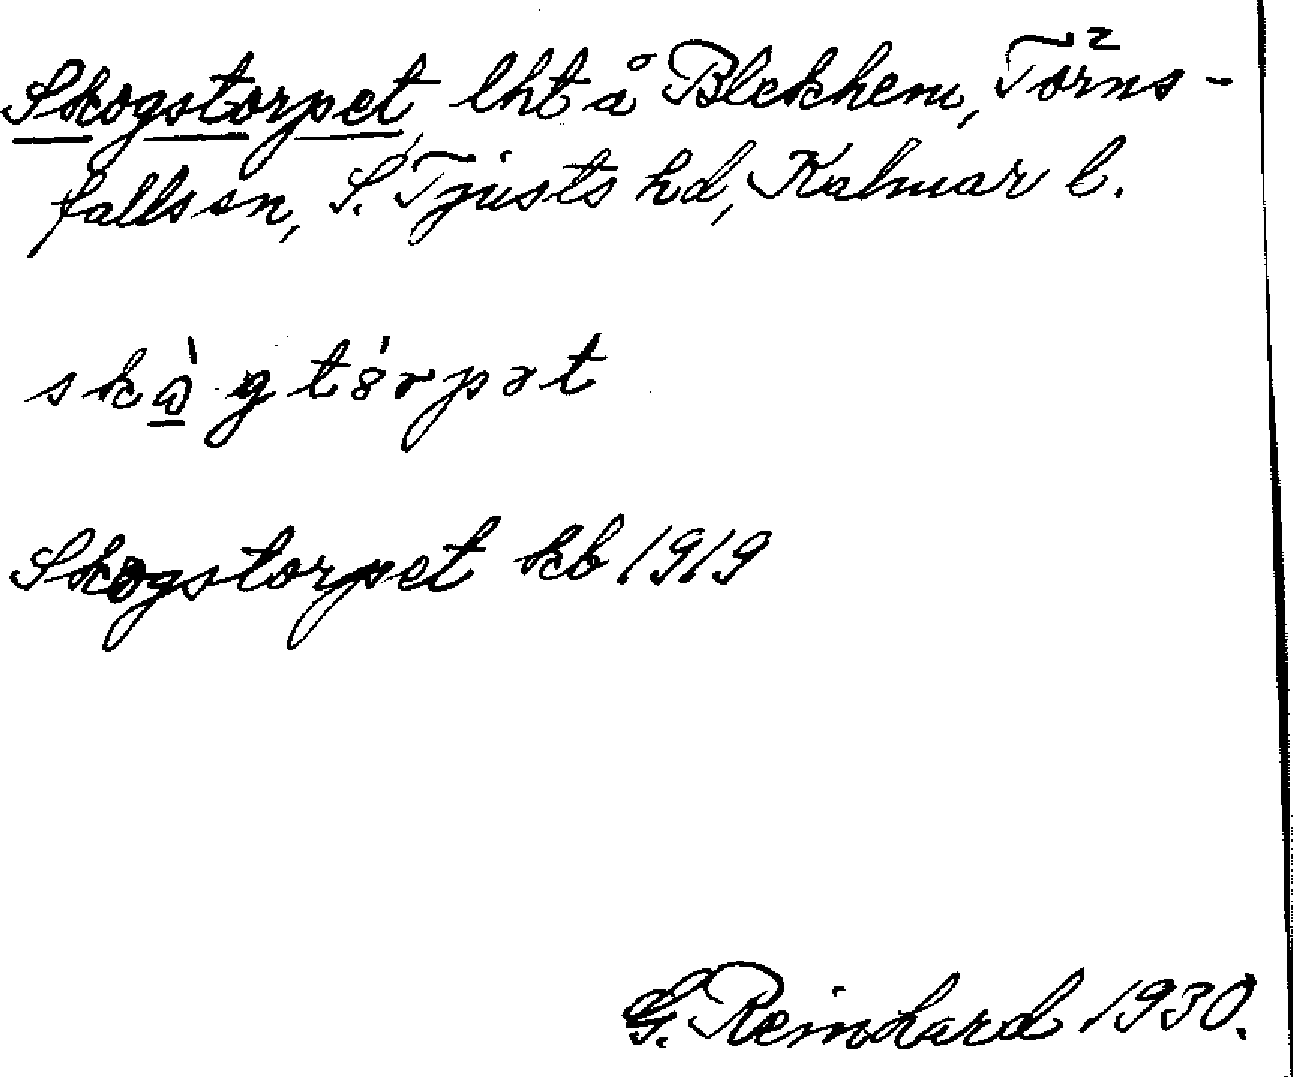 Skogstorpet, lht å Blekhem, Törns-
falls sn, S. Tjusts hd, Kalmar l.
skὼ̲gtórpət
Skogstorpet kb 1919
G. Reinhard 1930.